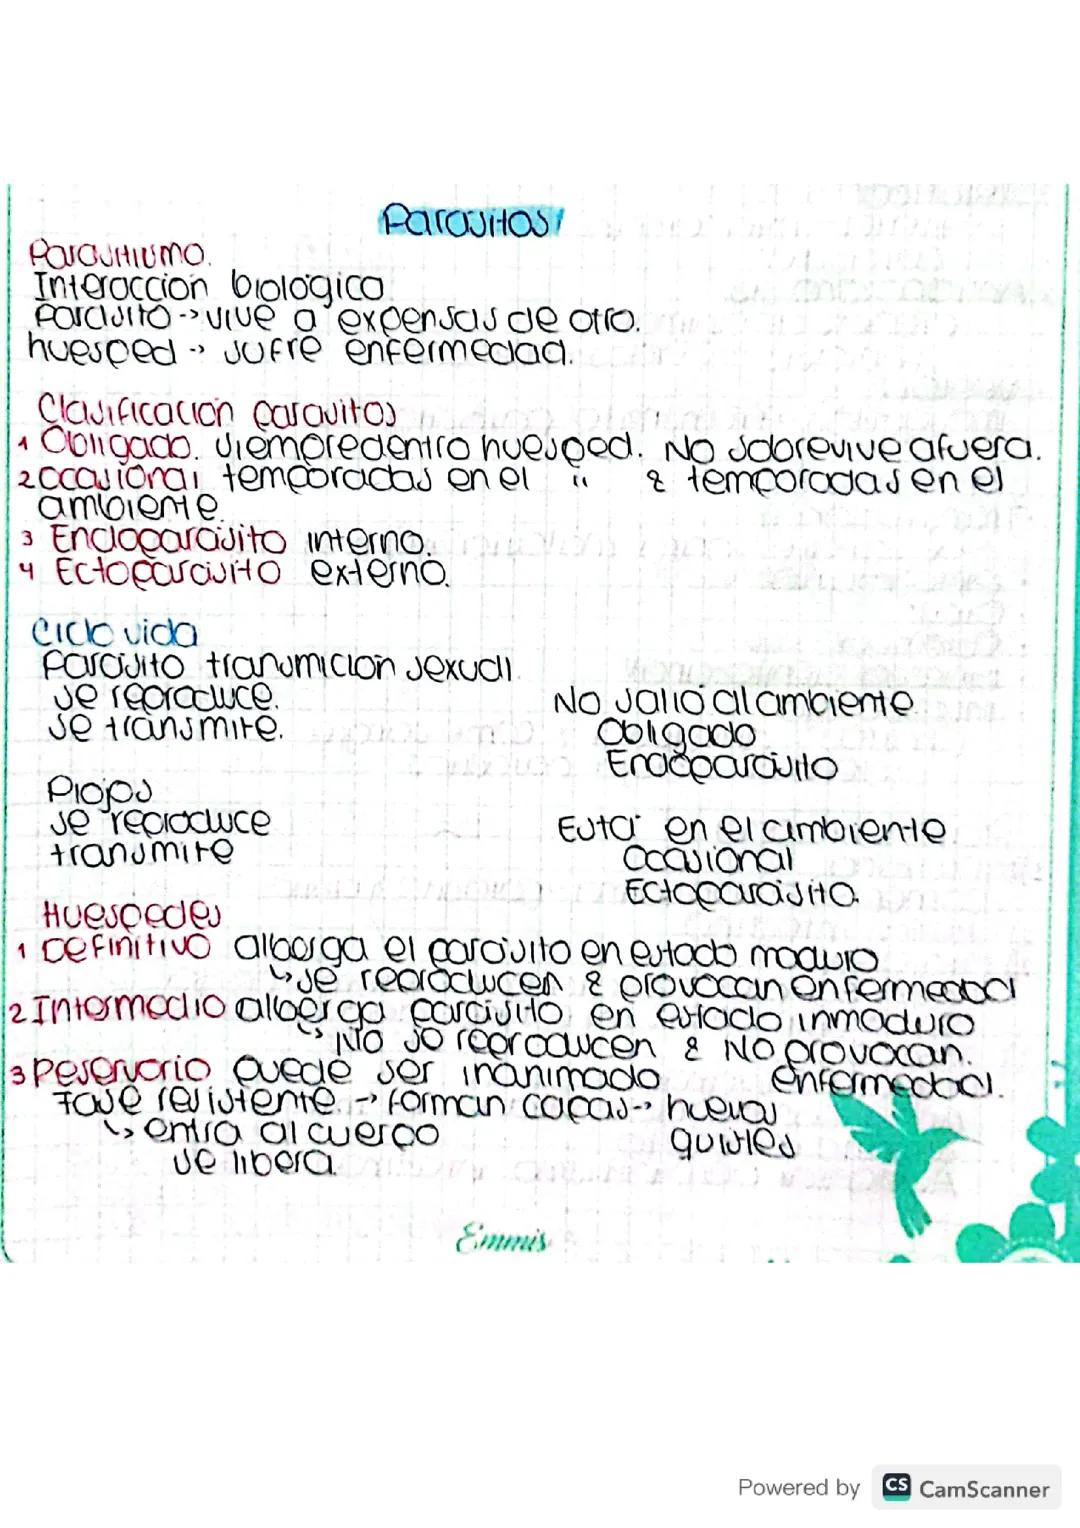 Parásitos
Parasitismo.
Interacción biológica.
Parásito -> vive a expensas de otro.
huesped -> sufre enfermedad.
Clasificación parásitos
1 Obligado. siempre dentro huesped. No sobrevive afuera.
2 occasional temporadas en el " & temporadas en el
ambiente.
3 Endoparásito interno.
4 Ectoparásito externo.
Ciclo vida
Parásito transmición sexual.
se reproduce.
se transmite.
No salió al ambiente.
Obligado
Endoparásito
Piojos
se reproduce
transmite
Está en el ambiente
Occasional
Ectoparásito.
Huespedes
1 Definitivo alberga el parásito en estado maduro
↳ se reproducen & provocan enfermedad
2 Intermedio alberga parásito en estado inmaduro
↳ No se reproducen & No provocan.
enfermedad.
3 Reservorio Puede ser inanimado
Fase resistente -> forman capas -> huevos
quistes
↳ entra al cuerpo
se libera.
Emmis
Powered by CS CamScanner